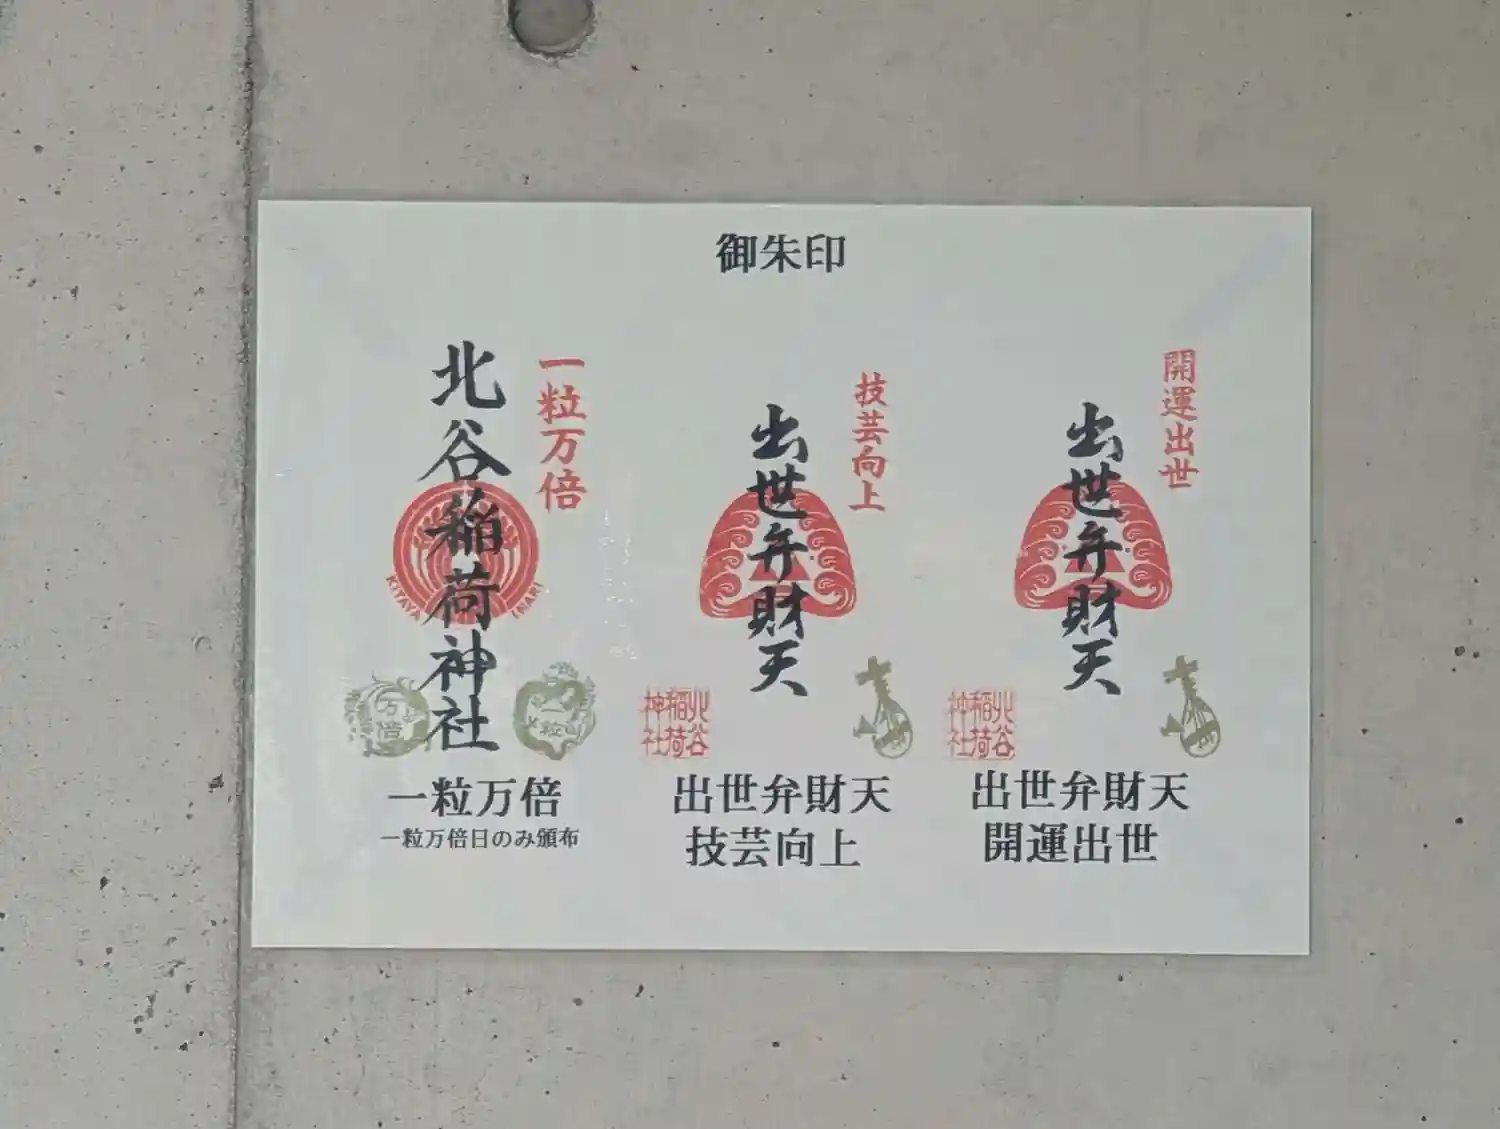 御朱印
一粒万倍
北谷稲荷神社
KITAYA INARI
万倍
一粒
一粒万倍
一粒万倍日のみ頒布
技芸向上
出世弁財天
北谷
稲荷
神社
出世弁財天
技芸向上
開運出世
出世弁財天
北谷
稲荷
神社
出世弁財天
開運出世